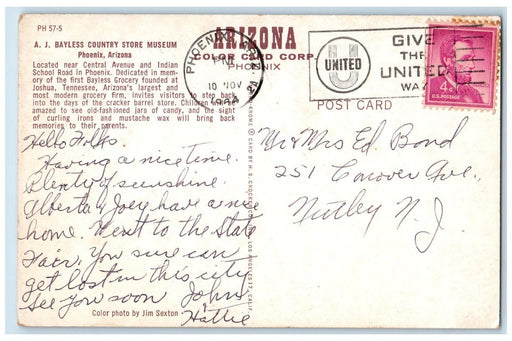 PH 57-5
A. J. BAYLESS COUNTRY STORE MUSEUM
Phoenix, Arizona
Located near Central Avenue and Indian
School Road in Phoenix. Dedicated in mem-
ory of the first Bayless Grocery founded at
Joshua, Tennessee, Arizona's largest and
most modern grocery firm, invites visitors to step back
into the days of the cracker barrel store. Children
amazed to see old-fashioned jars of candy, and the sight
of curling irons and mustache wax will bring back
memories to their parents.
Hello Folks.
Having a nice time.
Plenty of sunshine.
Alberta & Joey have a nice
home. Went to the State
Fair. You sure can
get lost in this city
See you soon John
Hattie
Color photo by Jim Sexton
ARIZONA
COLOR CARD CORP.
PHOENIX
PHOENIX, ARIZ.
PM
10 NOV
UNITED
GIVE
THE
UNITED
WAY
4¢
U.S. POSTAGE
POST CARD
Mr & Mrs Ed. Bond
251 Conover Ave.,
Nutley N.J.
© CARD BY H. S. CROCKER CO., INC., LOS ANGELES 17, CALIF.